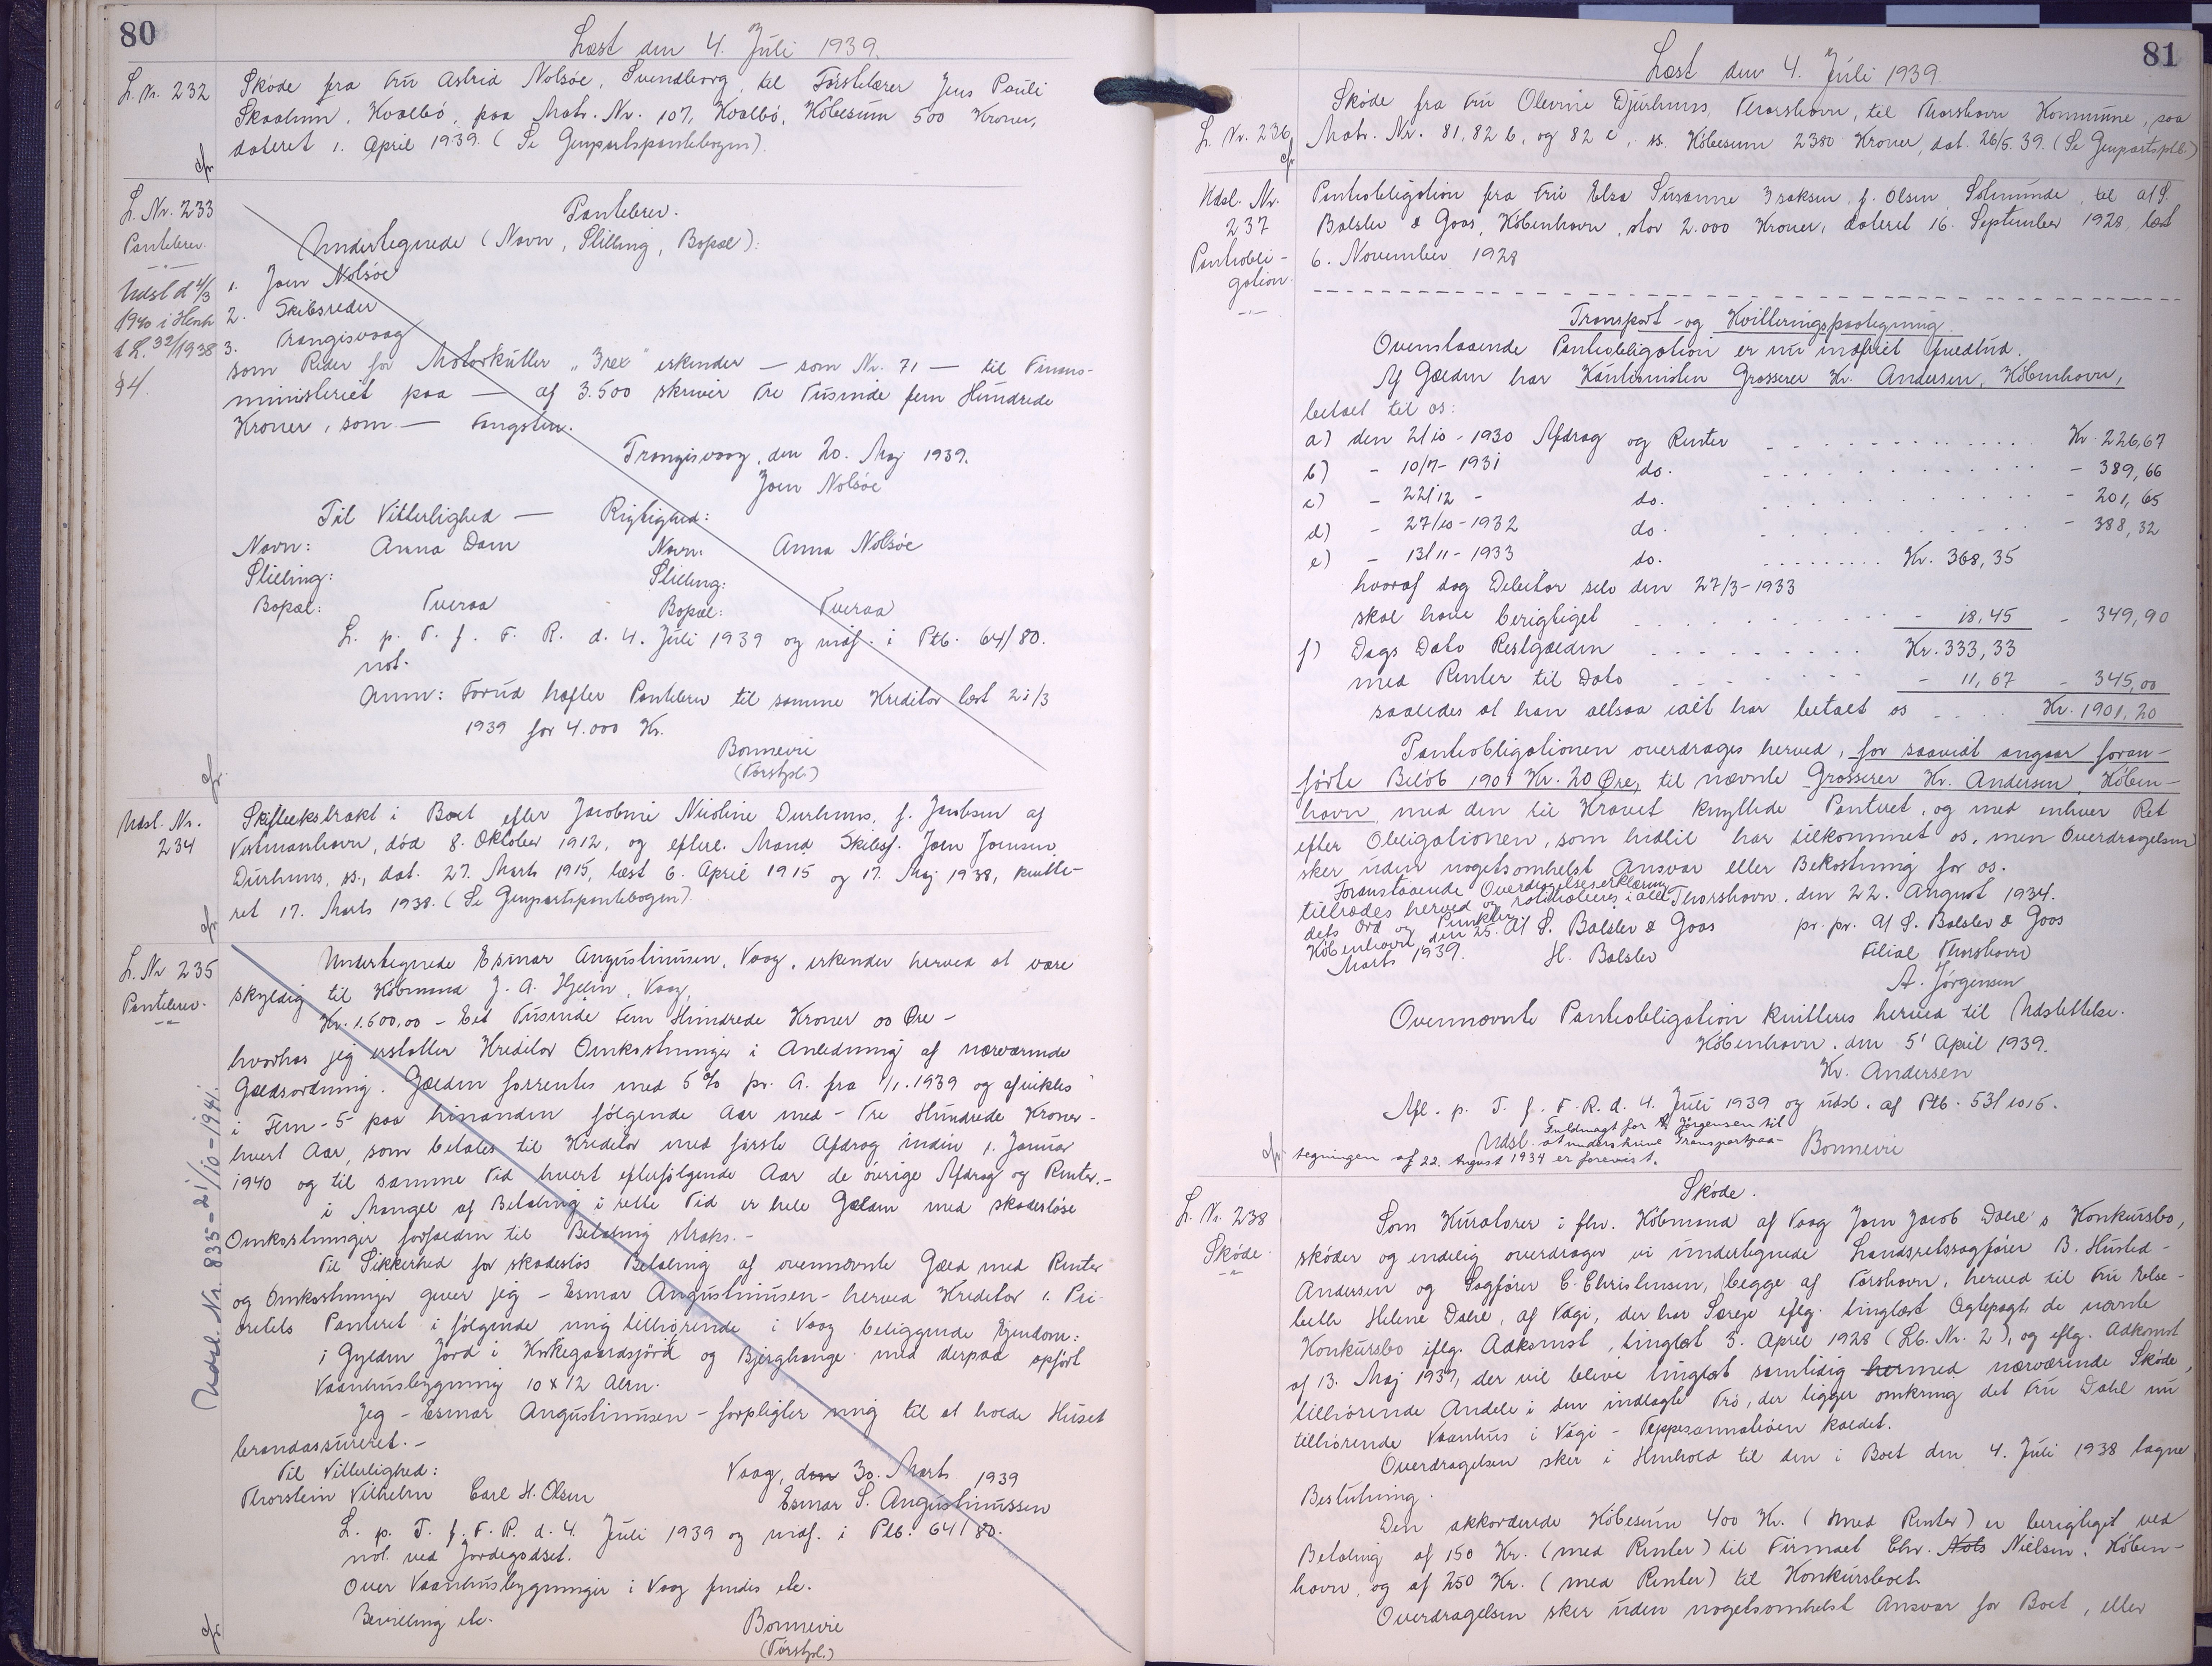 80
Læst den 4. Juli 1939.
L. Nr. 232
Skøde fra Fru Astrid Nolsøe, Svendborg, til Førstelærer Jens Pauli
Skaalum, Kvalbø, paa Matr. Nr. 107, Kvalbø, Købesum 500 Kroner,
dateret 1. April 1939. (Se Genpartspantebogen).
cfr.
L. Nr. 233
Pantebrev.
Udsl d 4/3
1940 i Henh
t L. 32/1938
§4.
Pantebrev.
Undertegnede (Navn, Stilling, Bopæl):
1. Joen Nolsøe
2. Skibsreder
3. Trangisvaag
som Reder for Motorkutter "Irex" erkender — som Nr. 71 — til Finans-
ministeriet paa — af 3.500 skriver Tre Tusinde fem Hundrede
Kroner, som — Fangsten.
Trangisvaag, den 20. Maj 1939.
Joen Nolsøe
Til Vitterlighed — Rigtighed:
Navn: Anna Dam Navn: Anna Nolsøe
Stilling: Stilling:
Bopæl: Tveraa Bopæl: Tveraa
L. p. T. f. F. R. d. 4. Juli 1939 og indf. i Ptb. 64/80.
not.
Anm: Forud hæfter Pantebrev til samme Kreditor læst 21/3
1939 for 4.000 Kr.
Bonnevie
(Torshpl.)
cfr.
Udsl. Nr.
234
Skifteekstrakt i Boet efter Jacobine Nicoline Durhuus, f. Jacobsen af
Vestmanhavn, død 8. Oktober 1912, og efterl. Mand Skibsf. Joen Joensen
Durhuus, ss., dat. 27. Marts 1915, læst 6. April 1915 og 17. Maj 1938, kvitte-
ret 17. Marts 1938. (Se Genpartspantebogen).
cfr.
L. Nr 235
Pantebrev.
Udsl. Nr. 835 - 21/10 - 1941.
Undertegnede Esmar Augustinusen, Vaag, erkender herved at være
skyldig til Købmand J. A. Hjelm, Vaag,
Kr. 1.500,00 - Eet Tusinde Fem Hundrede Kroner 00 Øre -
hvorhos jeg erstatter Kreditor Omkostninger i Anledning af nærværende
Gældsordning. Gælden forrentes med 5 % pr. A. fra 1/1. 1939 og afvikles
i Fem - 5 paa hinanden følgende Aar med - Tre Hundrede Kroner -
hvert Aar, som betales til Kreditor med første Afdrag inden 1. Januar
1940 og til samme Tid hvert efterfølgende Aar de øvrige Afdrag og Renter.-
i Mangel af Betaling i rette Tid er hele Gælden med skadesløse
Omkostninger forfalden til Betaling straks.-
Til Sikkerhed for skadesløs Betaling af ovennævnte Gæld med Renter
og Omkostninger giver jeg - Esmar Augustinusen - herved Kreditor 1. Pri-
oritets Panteret i følgende mig tilhørende i Vaag beliggende Ejendom:
1 Gylden Jord i Kirkegaardsjørd og Bjerghange med derpaa opført
Vaanhusbygning 10 x 12 Alen.
Jeg - Esmar Augustinusen - forpligter mig til at holde Huset
brandassureret.-
Til Vitterlighed:
Vaag, den 30. Marts 1939
Thorstein Vilhelm Carl H. Olsen
Esmar S. Augustinussen
L. p. T. f. F. R. d. 4. Juli 1939 og indf. i Ptb. 64/80.
not. ved Jordegodset.
Over Vaanhusbygninger i Vaag findes ek.
Bevilling ek.
Bonnevie
(Torshpl.)
cfr.
81
Læst den 4. Juli 1939.
L. Nr. 236
cfr.
Skøde fra Fru Olevine Djurhuus, Thorshavn, til Thorshavn Kommune, paa
Matr. Nr. 81, 82 b, og 82 c, ss. Købesum 2380 Kroner, dat. 26/5. 39. (Se Genpartsptb.)
Udsl. Nr.
237
Panteobli-
gation.
Panteobligation fra Fru Elsa Susanne Isaksen, f. Olsen, Solmunde, til A/S.
Balslev & Goos, København, stor 2.000 Kroner, dateret 16. September 1928, læst
6. November 1928
Transport - og Kvitteringspaategning.
Ovenstaaende Panteobligation er nu indfriet fuldtud.
Af Gælden har Kautionisten Grosserer Kr. Andersen, København,
betalt til os:
a) den 21/10 - 1930 Afdrag og Renter Kr. 226,67
b) - 10/7 - 1931 do. - 389,66
c) - 22/12 - do. - 201,65
d) - 27/10 - 1932 do. - 388,32
e) - 13/11 - 1933 do. Kr. 368,35
hvoraf dog Debitor selv den 27/3 - 1933
skal have berigtiget - 18,45 - 349,90
f) Dags Dato Restgælden Kr. 333,33
med Renter til Dato - 11,67 - 345,00
saaledes at han altsaa ialt har betalt os Kr. 1901,20
Panteobligationen overdrages herved, for saavidt angaar foran-
førte Beløb 1901 Kr. 20 Øre, til nævnte Grosserer Kr. Andersen, Køben-
havn, med den til Kravet knyttede Panteret, og med enhver Ret
efter Obligationen, som hidtil har tilkommet os, men Overdragelsen
sker uden nogetsomhelst Ansvar eller Bekostning for os.
Foranstaaende Overdragelseserklæring
tiltrædes herved og ratihaberes i alle
dets Ord og Punkter.
København, den 25.
Marts 1939.
Thorshavn, den 22. August 1934.
A/S. Balslev & Goos pr. pr. A/S. Balslev & Goos
H. Balslev Filial Thorshavn
A. Jørgensen
Ovennævnte Panteobligation kvitteres herved til Udslettelse.
København, den 5' April 1939.
Kr. Andersen
Afl. p. T. f. F. R. d. 4. Juli 1939 og udsl. af Ptb. 53/1015.
Udsl. Fuldmagt for A. Jørgensen til
at underskrive Transportpaa-
cfr. tegningen af 22. August 1934 er forevist.
Bonnevie
L. Nr. 238
Skøde.
Skøde.
Som Kuratorer i fhv. Købmand af Vaag Joen Jacob Dahl's Konkursbo,
skøder og endelig overdrager vi undertegnede Landsretssagfører B. Husted-
Andersen og Sagfører C. Christensen, begge af Tórshavn, herved til Fru Else-
beth Helene Dahl, af Vági, der har Særeje iflg. tinglæst Ægtepagt, de nævnte
Konkursbo iflg. Adkomst, tinglæst 3. April 1928 (Lb. Nr. 2), og iflg. Adkomst
af 13. Maj 1937, der vil blive tinglæst samtidig hermed nærværende Skøde,
tilhørende Andele i den indlagte Trø, der ligger omkring det Fru Dahl nu
tilhørende Vaanhus i Vági - kaldet.
Overdragelsen sker i Henhold til den i Boet den 4. Juli 1938 tagne
Beslutning.
Den akkorderede Købesum 400 Kr. (med Renter) er berigtiget ved
Betaling af 150 Kr. (med Renter) til Firmaet Chr. Nols Nielsen, Køben-
havn, og af 250 Kr. (med Renter) til Konkursboet.
Overdragelsen sker uden nogetsomhelst Ansvar for Boet, eller